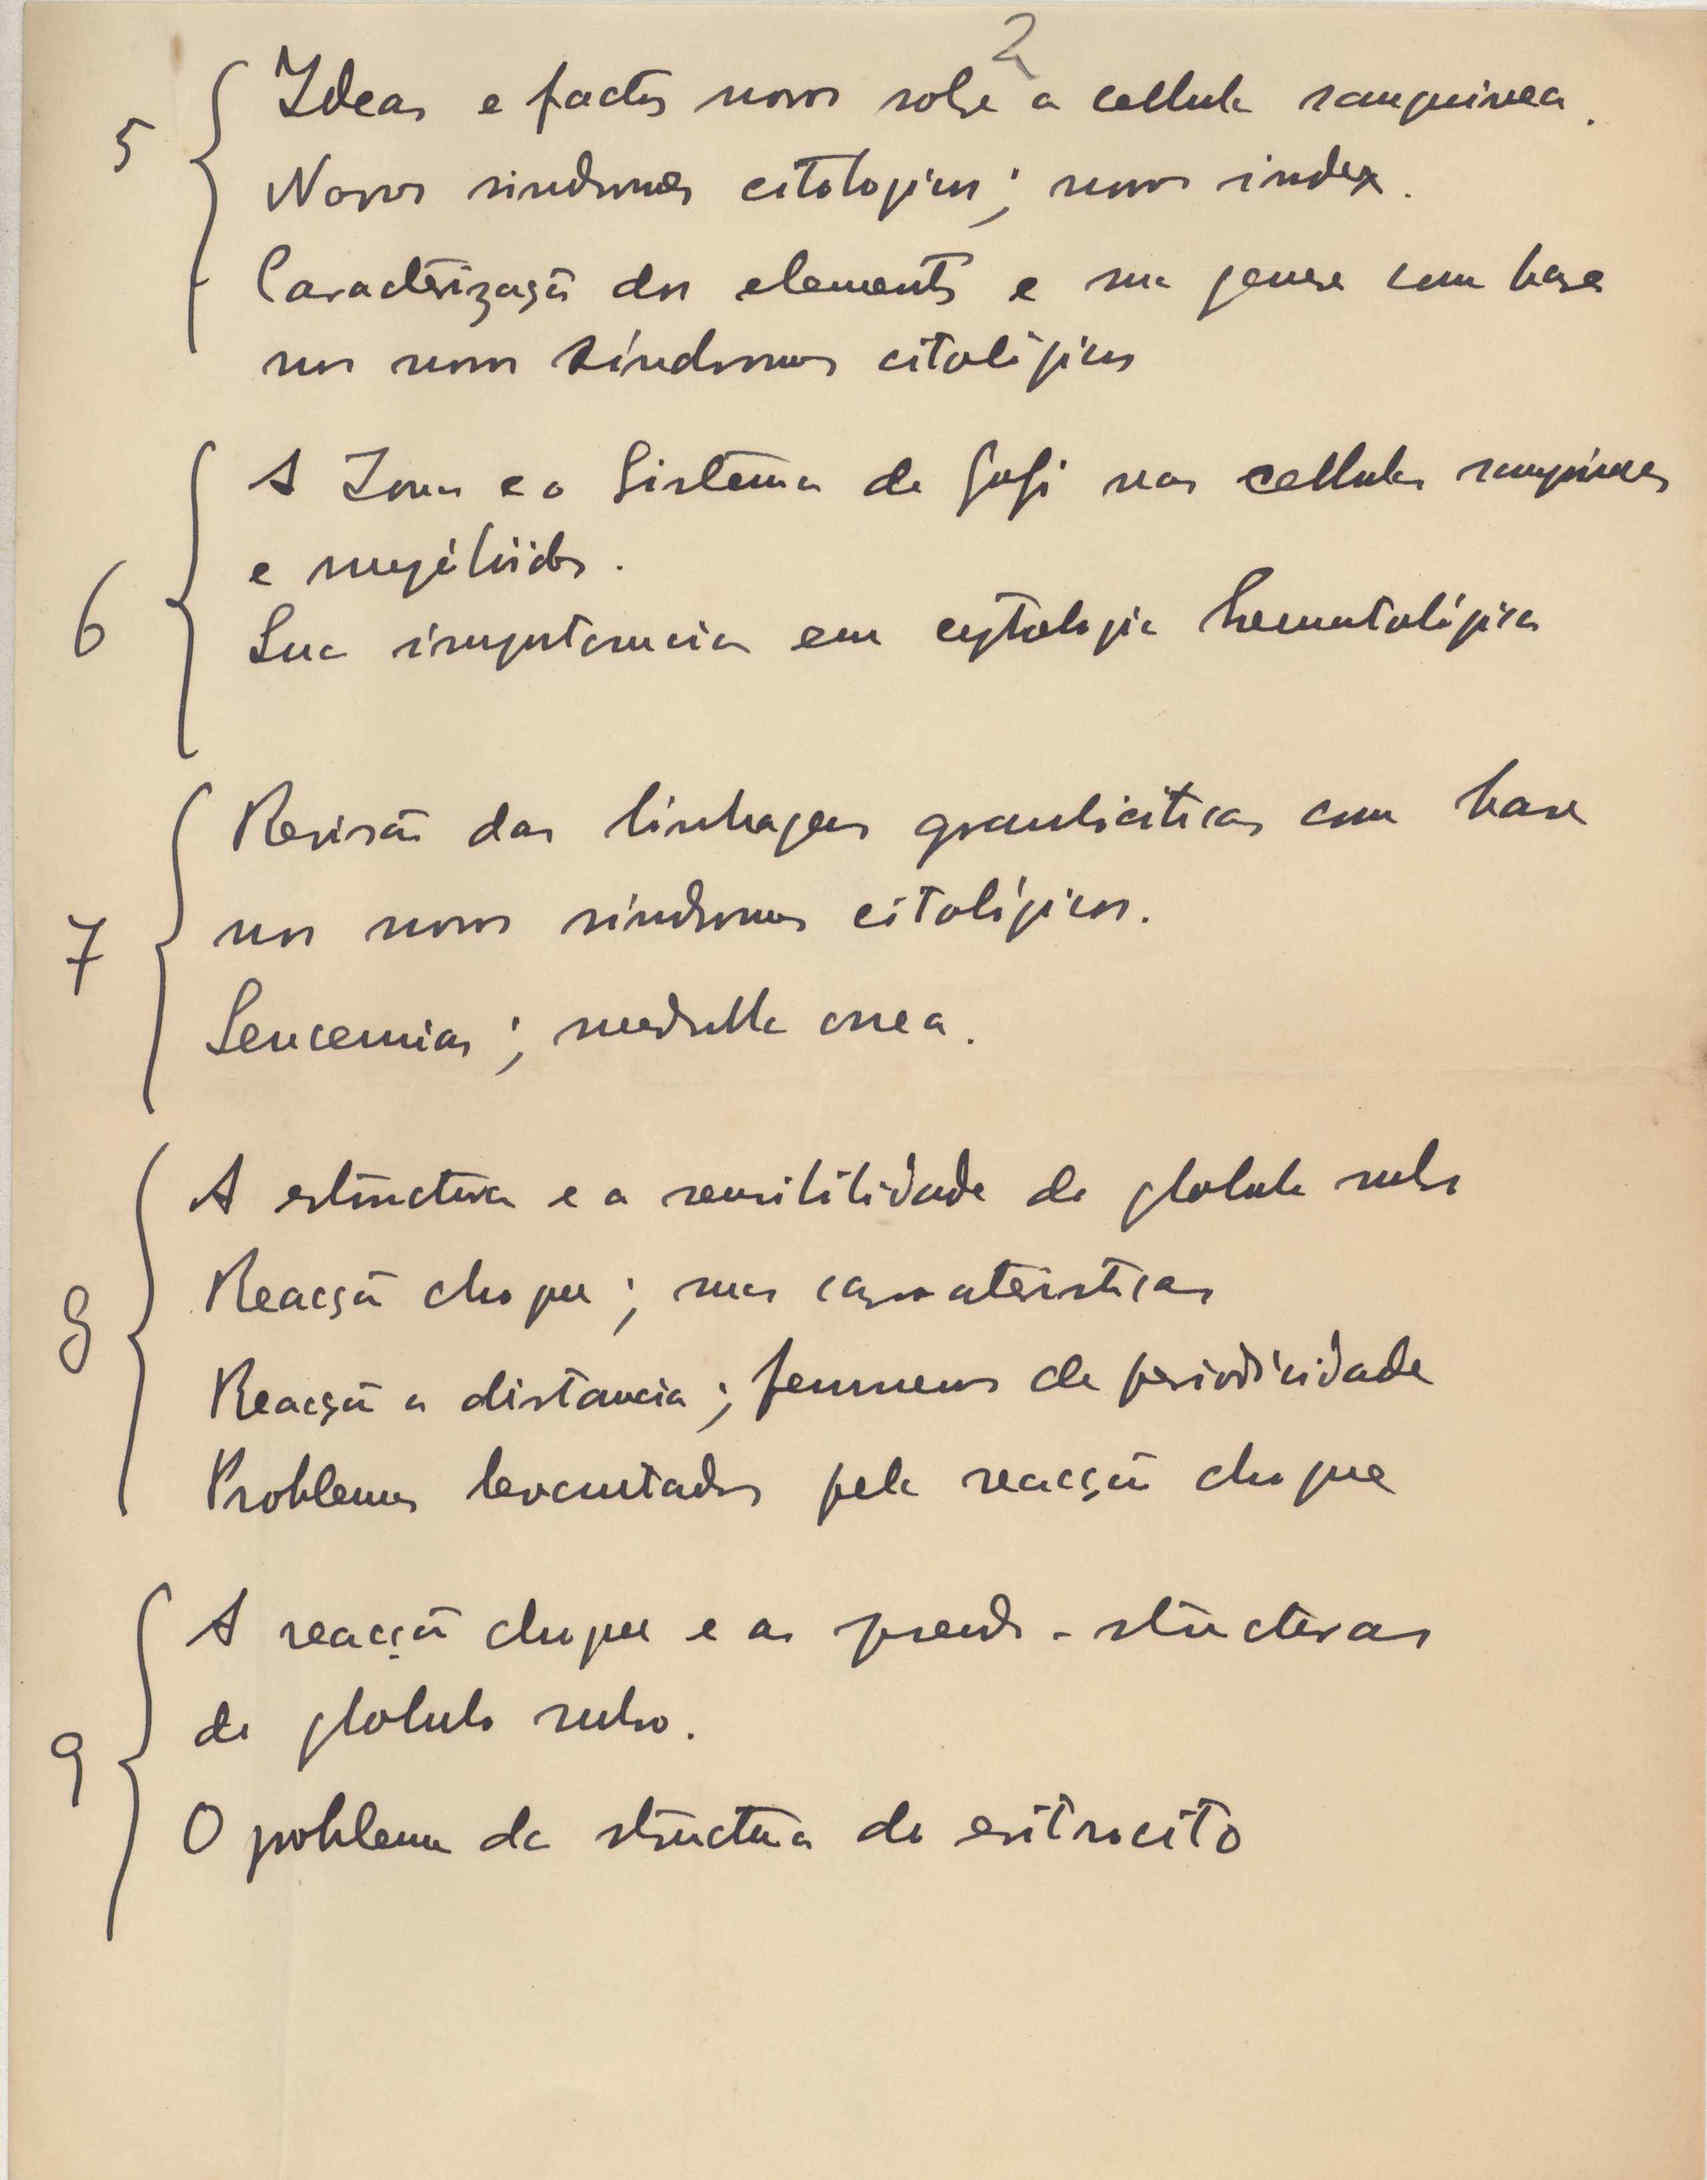 2
5 Ideas e factos novos sobre a cellula sanguinea.
Novos sindromes citologicos; novos index.
Caracterização dos elementos e sua genese com base
nos novos síndromes citológicos
6 A Zona e o Sistema de Golgi nas cellulas sanguineas
e myelóides.
Sua importancia em cytologia hematológica
7 Revisão das linhagens granulocíticas com base
nos novos síndromes citológicos.
Leucemias; medulla ossea.
8 A estructura e a sensibilidade do globulo rubro
Reacção choque; suas caracteristicas
Reacção a distancia; fenomenos de periodicidade
Problemas levantados pela reacção choque
9 A reacção choque e as pseudo-structuras
do globulo rubro.
O problema da structura do eritrocito